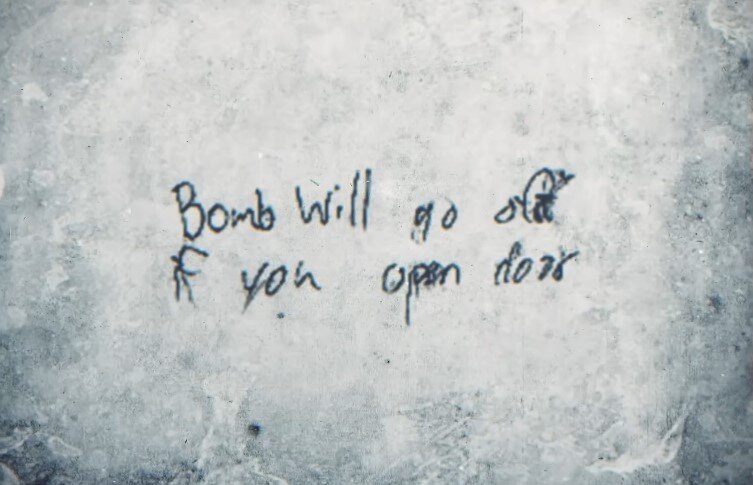 Bomb Will go off
if you open door